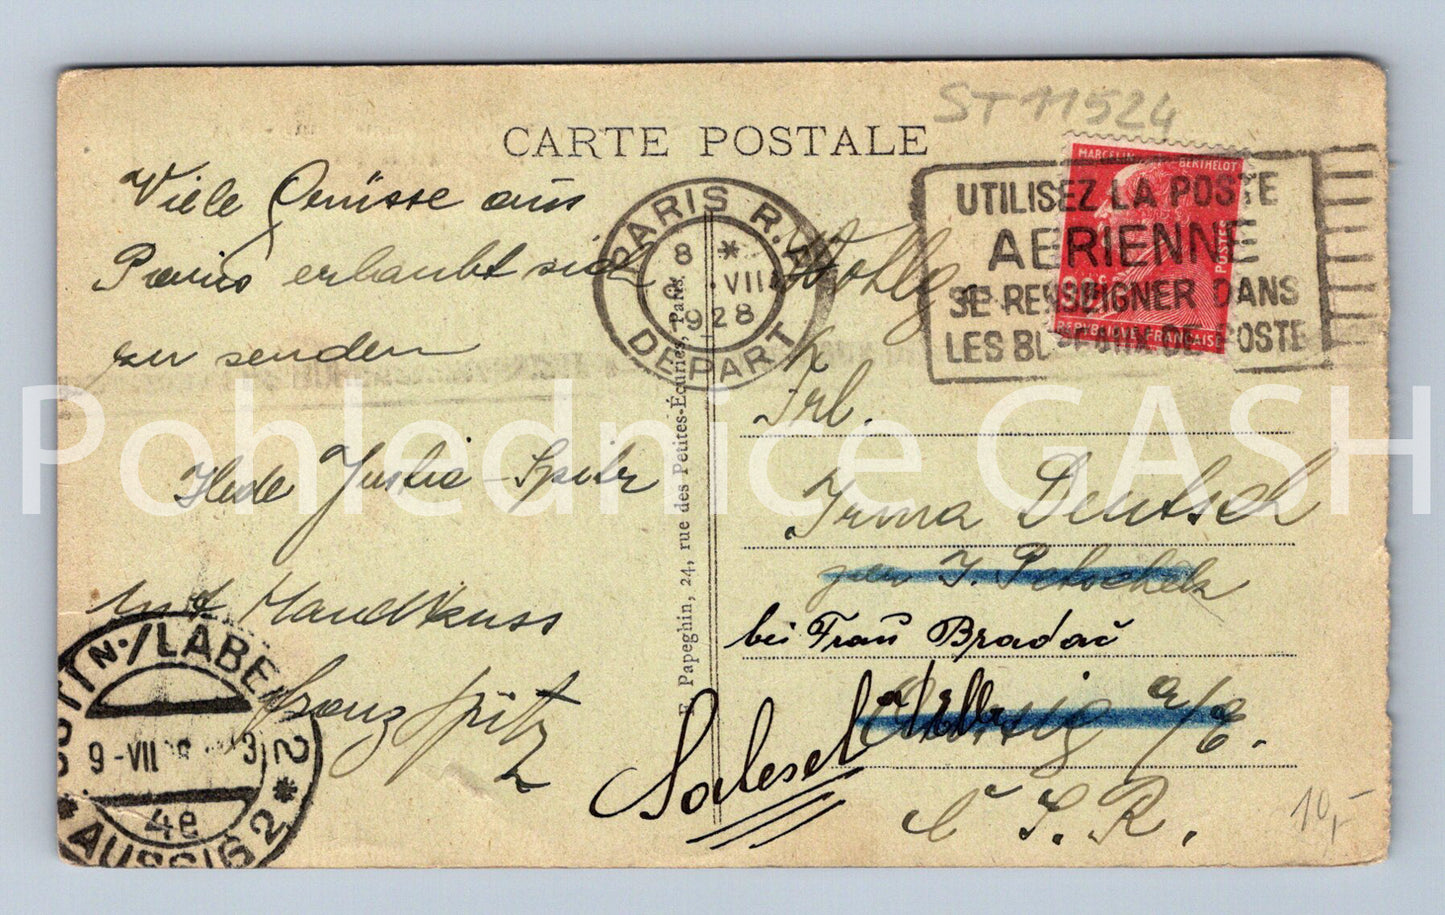 ST 11524
CARTE POSTALE
Viele Grüsse aus
Paris erlaubt sich
zu senden
Hede Justia - Spitz
mit Handkuss
Franz Spitz
PARIS R.
8 *
VII
1928
DEPART
UTILISEZ LA POSTE
AERIENNE
SE RENSEIGNER DANS
LES BUREAUX DE POSTE
MARCELIN BERTHELOT
POSTES
90c
REPUBLIQUE FRANÇAISE
Wohlg.
Frl.
Irma Deutsch
bei Frau Bradač
Salesel a/Elbe
Aussig a/E.
Č. S. R.
E. Papeghin, 24, rue des Petites-Écuries, Paris.
ÚSTÍ N./LABEM 2
9-VII 28 - 3
4e
* AUSSIG 2 *
10,-
Pohlednice GASH